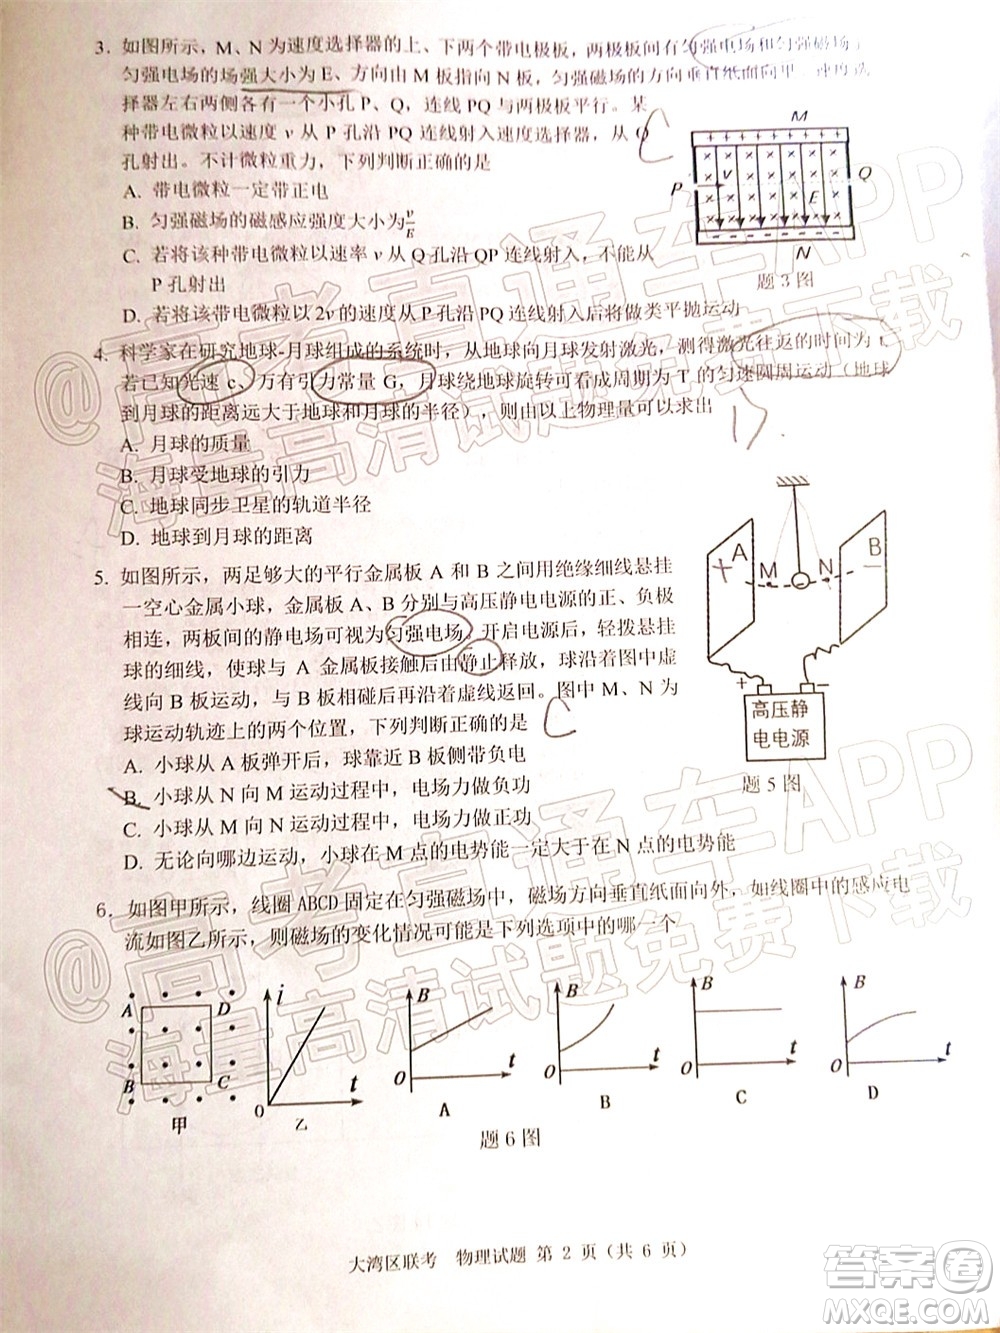 3. 如图所示，M、N为速度选择器的上、下两个带电极板，两极板间有匀强电场和匀强磁场，
匀强电场的场强大小为E、方向由M板指向N板，匀强磁场的方向垂直纸面向里，速度选
择器左右两侧各有一个小孔P、Q，连线PQ与两极板平行。某
种带电微粒以速度v从P孔沿PQ连线射入速度选择器，从Q
孔射出。不计微粒重力，下列判断正确的是
A. 带电微粒一定带正电
B. 匀强磁场的磁感应强度大小为v/E
C. 若将该种带电微粒以速率v从Q孔沿QP连线射入，不能从
P孔射出
D. 若将该带电微粒以2v的速度从P孔沿PQ连线射入后将做类平抛运动
M
P
v
Q
E
N
题3图
C
4. 科学家在研究地球-月球组成的系统时，从地球向月球发射激光，测得激光往返的时间为t，
若已知光速c、万有引力常量G，月球绕地球旋转可看成周期为T的匀速圆周运动（地球
到月球的距离远大于地球和月球的半径），则由以上物理量可以求出
D
A. 月球的质量
B. 月球受地球的引力
C. 地球同步卫星的轨道半径
D. 地球到月球的距离
5. 如图所示，两足够大的平行金属板A和B之间用绝缘细线悬挂
一空心金属小球，金属板A、B分别与高压静电电源的正、负极
相连，两板间的静电场可视为匀强电场。开启电源后，轻拨悬挂
球的细线，使球与A金属板接触后由静止释放，球沿着图中虚
线向B板运动，与B板相碰后再沿着虚线返回。图中M、N为
球运动轨迹上的两个位置，下列判断正确的是
C
A. 小球从A板弹开后，球靠近B板侧带负电
B. 小球从N向M运动过程中，电场力做负功
C. 小球从M向N运动过程中，电场力做正功
D. 无论向哪边运动，小球在M点的电势能一定大于在N点的电势能
A
B
M
N
+
−
高压静
电电源
题5图
6. 如图甲所示，线圈ABCD固定在匀强磁场中，磁场方向垂直纸面向外，如线圈中的感应电
流如图乙所示，则磁场的变化情况可能是下列选项中的哪一个
A D
B C
甲
i
O t
乙
B
O t
A
B
O t
B
B
O t
C
B
O t
D
题6图
大湾区联考 物理试题 第 2 页（共 6 页）
@高考直通车APP
海量高清试题免费下载
@高考直通车APP
海量高清试题免费下载
答案圈
MXQE.COM